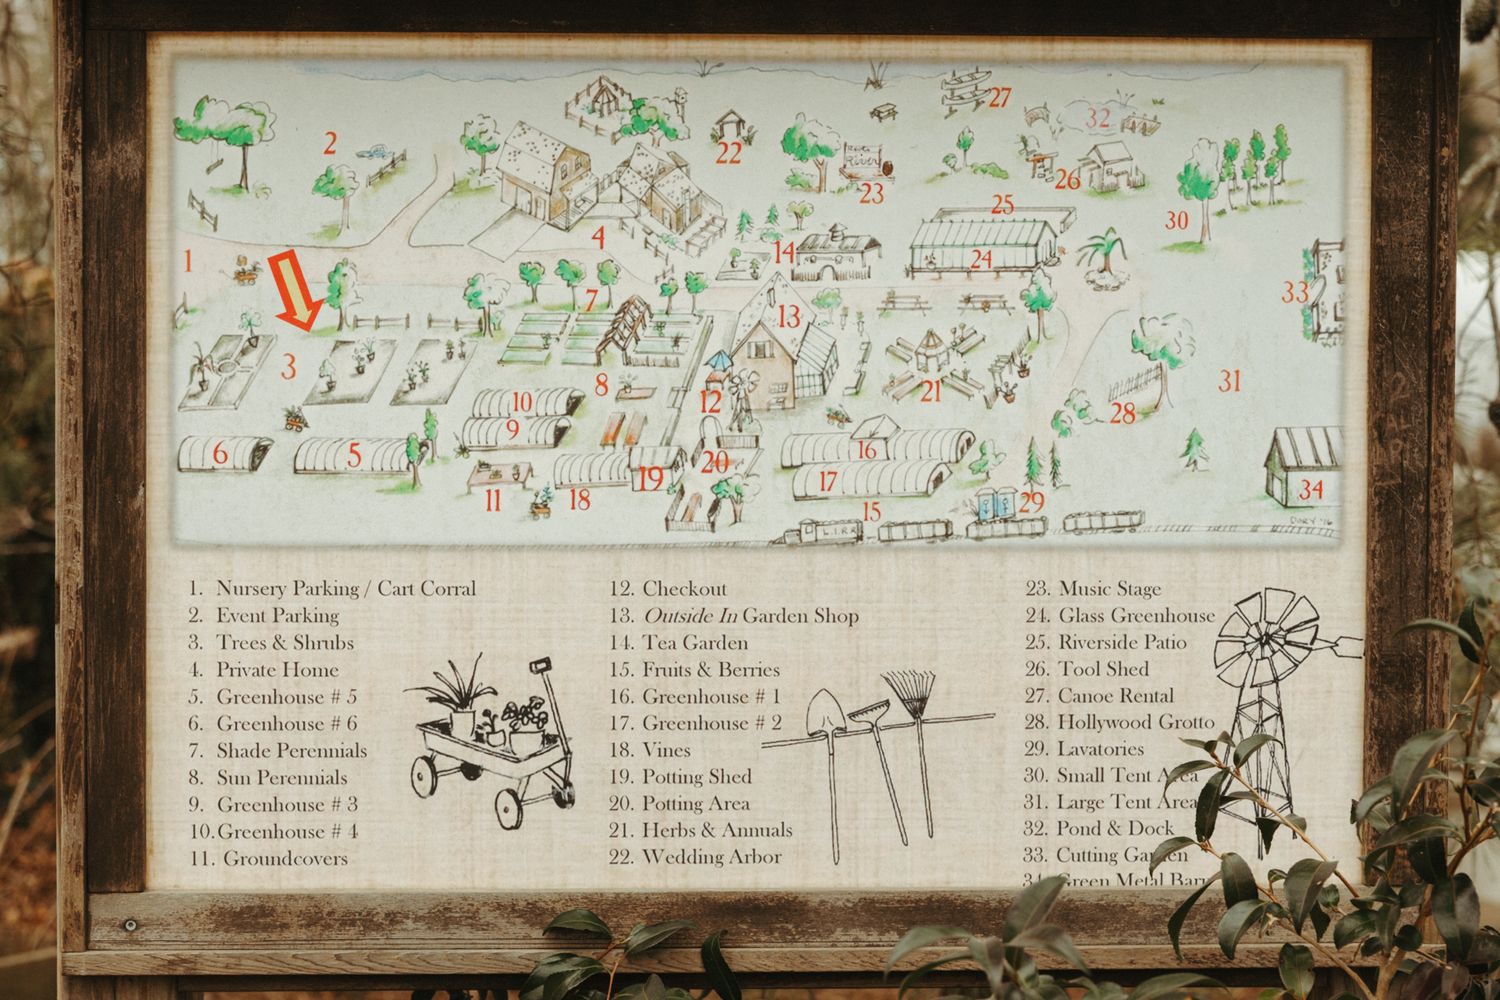 2
27
32
22
River
23
26
25
30
1
4
14
24
33
7
13
3
31
8
21
12
10
28
9
6
5
16
20
19
17
34
11
18
15
29
L.I.R.R
DORY '16
1. Nursery Parking / Cart Corral
2. Event Parking
3. Trees & Shrubs
4. Private Home
5. Greenhouse # 5
6. Greenhouse # 6
7. Shade Perennials
8. Sun Perennials
9. Greenhouse # 3
10. Greenhouse # 4
11. Groundcovers
12. Checkout
13. Outside In Garden Shop
14. Tea Garden
15. Fruits & Berries
16. Greenhouse # 1
17. Greenhouse # 2
18. Vines
19. Potting Shed
20. Potting Area
21. Herbs & Annuals
22. Wedding Arbor
23. Music Stage
24. Glass Greenhouse
25. Riverside Patio
26. Tool Shed
27. Canoe Rental
28. Hollywood Grotto
29. Lavatories
30. Small Tent Area
31. Large Tent Area
32. Pond & Dock
33. Cutting Garden
34. Green Metal Barn